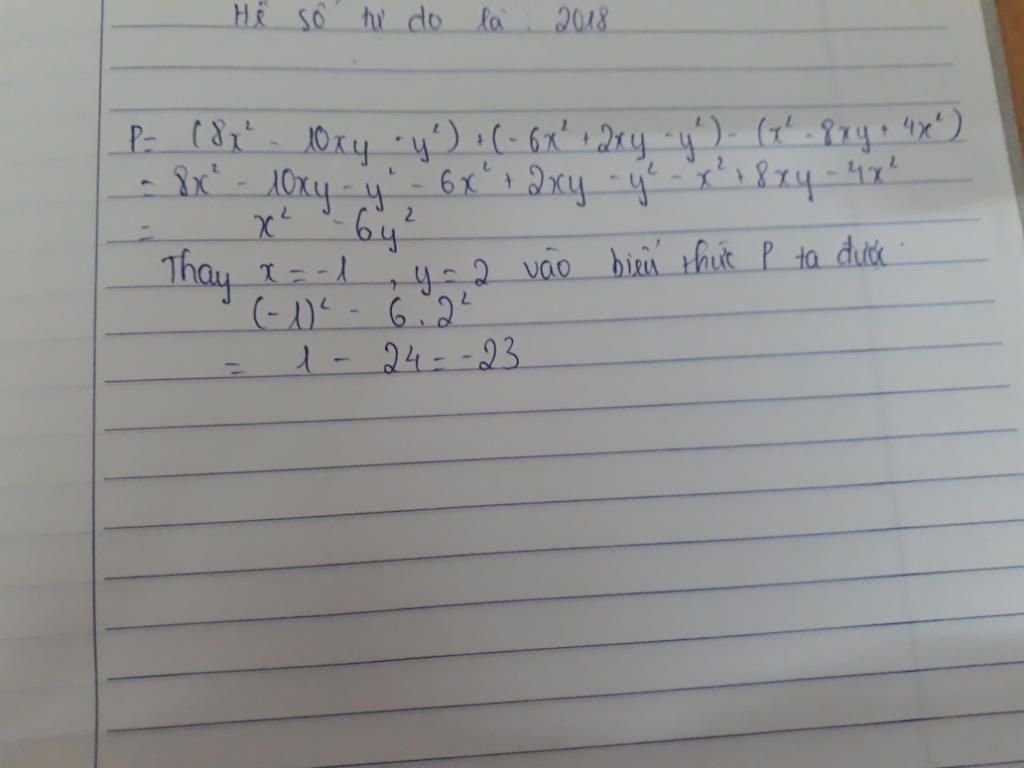 Hệ số tự do là : 2018
P = (8x² - 10xy - y²) + (-6x² + 2xy - y²) - (x² - 8xy + 4x²)
= 8x² - 10xy - y² - 6x² + 2xy - y² - x² + 8xy - 4x²
= x² - 6y²
Thay x = -1 , y = 2 vào biểu thức P ta được :
(-1)² - 6 . 2²
= 1 - 24 = -23